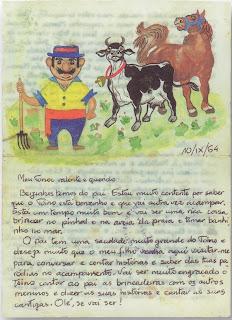 10/IX/64
Meu Tonos valente e querido
Beijinhos ternos do pai. Estou muito contente por saber
que o Tonio está bonzinho e que vai outra vez acampar.
Está um tempo muito bom e vai ser uma rica coisa,
brincar no pinhal e na areia da praia e tomar banhi-
nho no mar.
O pai tem uma saudade muito grande do Tonio e
deseja muito que o meu filho venha aqui visitar-me
para conversar e contar histórias e saber das tuas pa-
ródias no acampamento. Vai ser muito engraçado o
Tonio contar ao pai as brincadeiras com os outros
meninos e dizer as suas histórias e cantar as suas
cantigas. Olé, se vai ser!